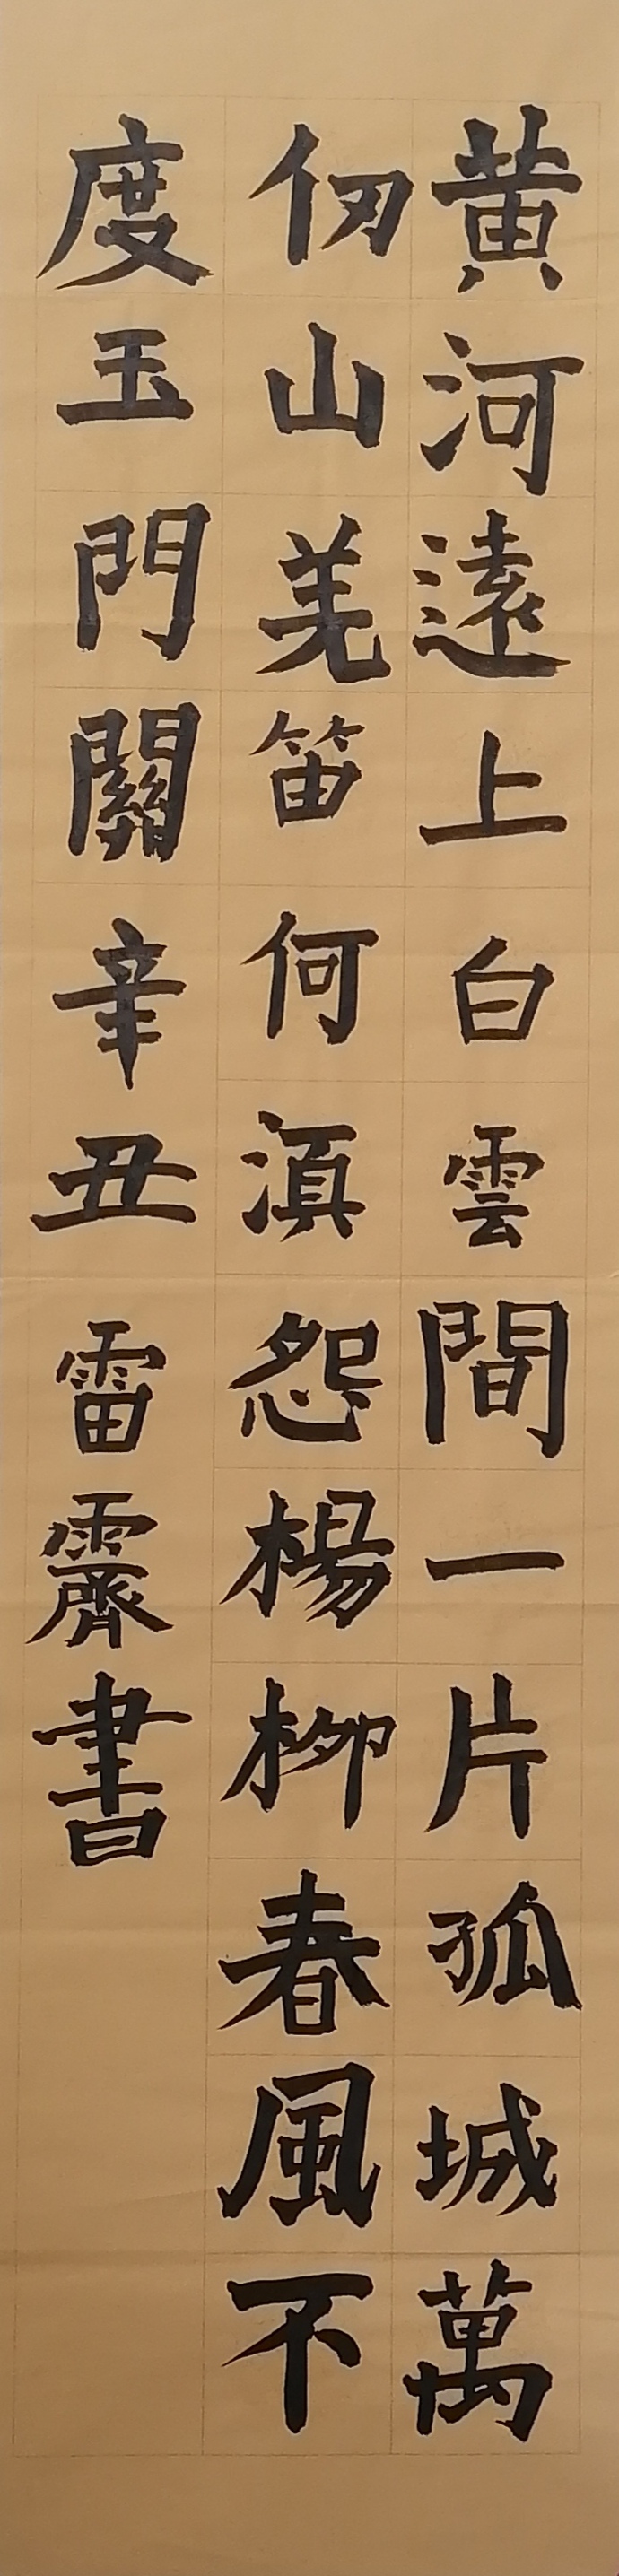 黄河遠上白雲間一片孤城萬
仞山羌笛何湏怨楊柳春風不
度玉門關辛丑雷霽書